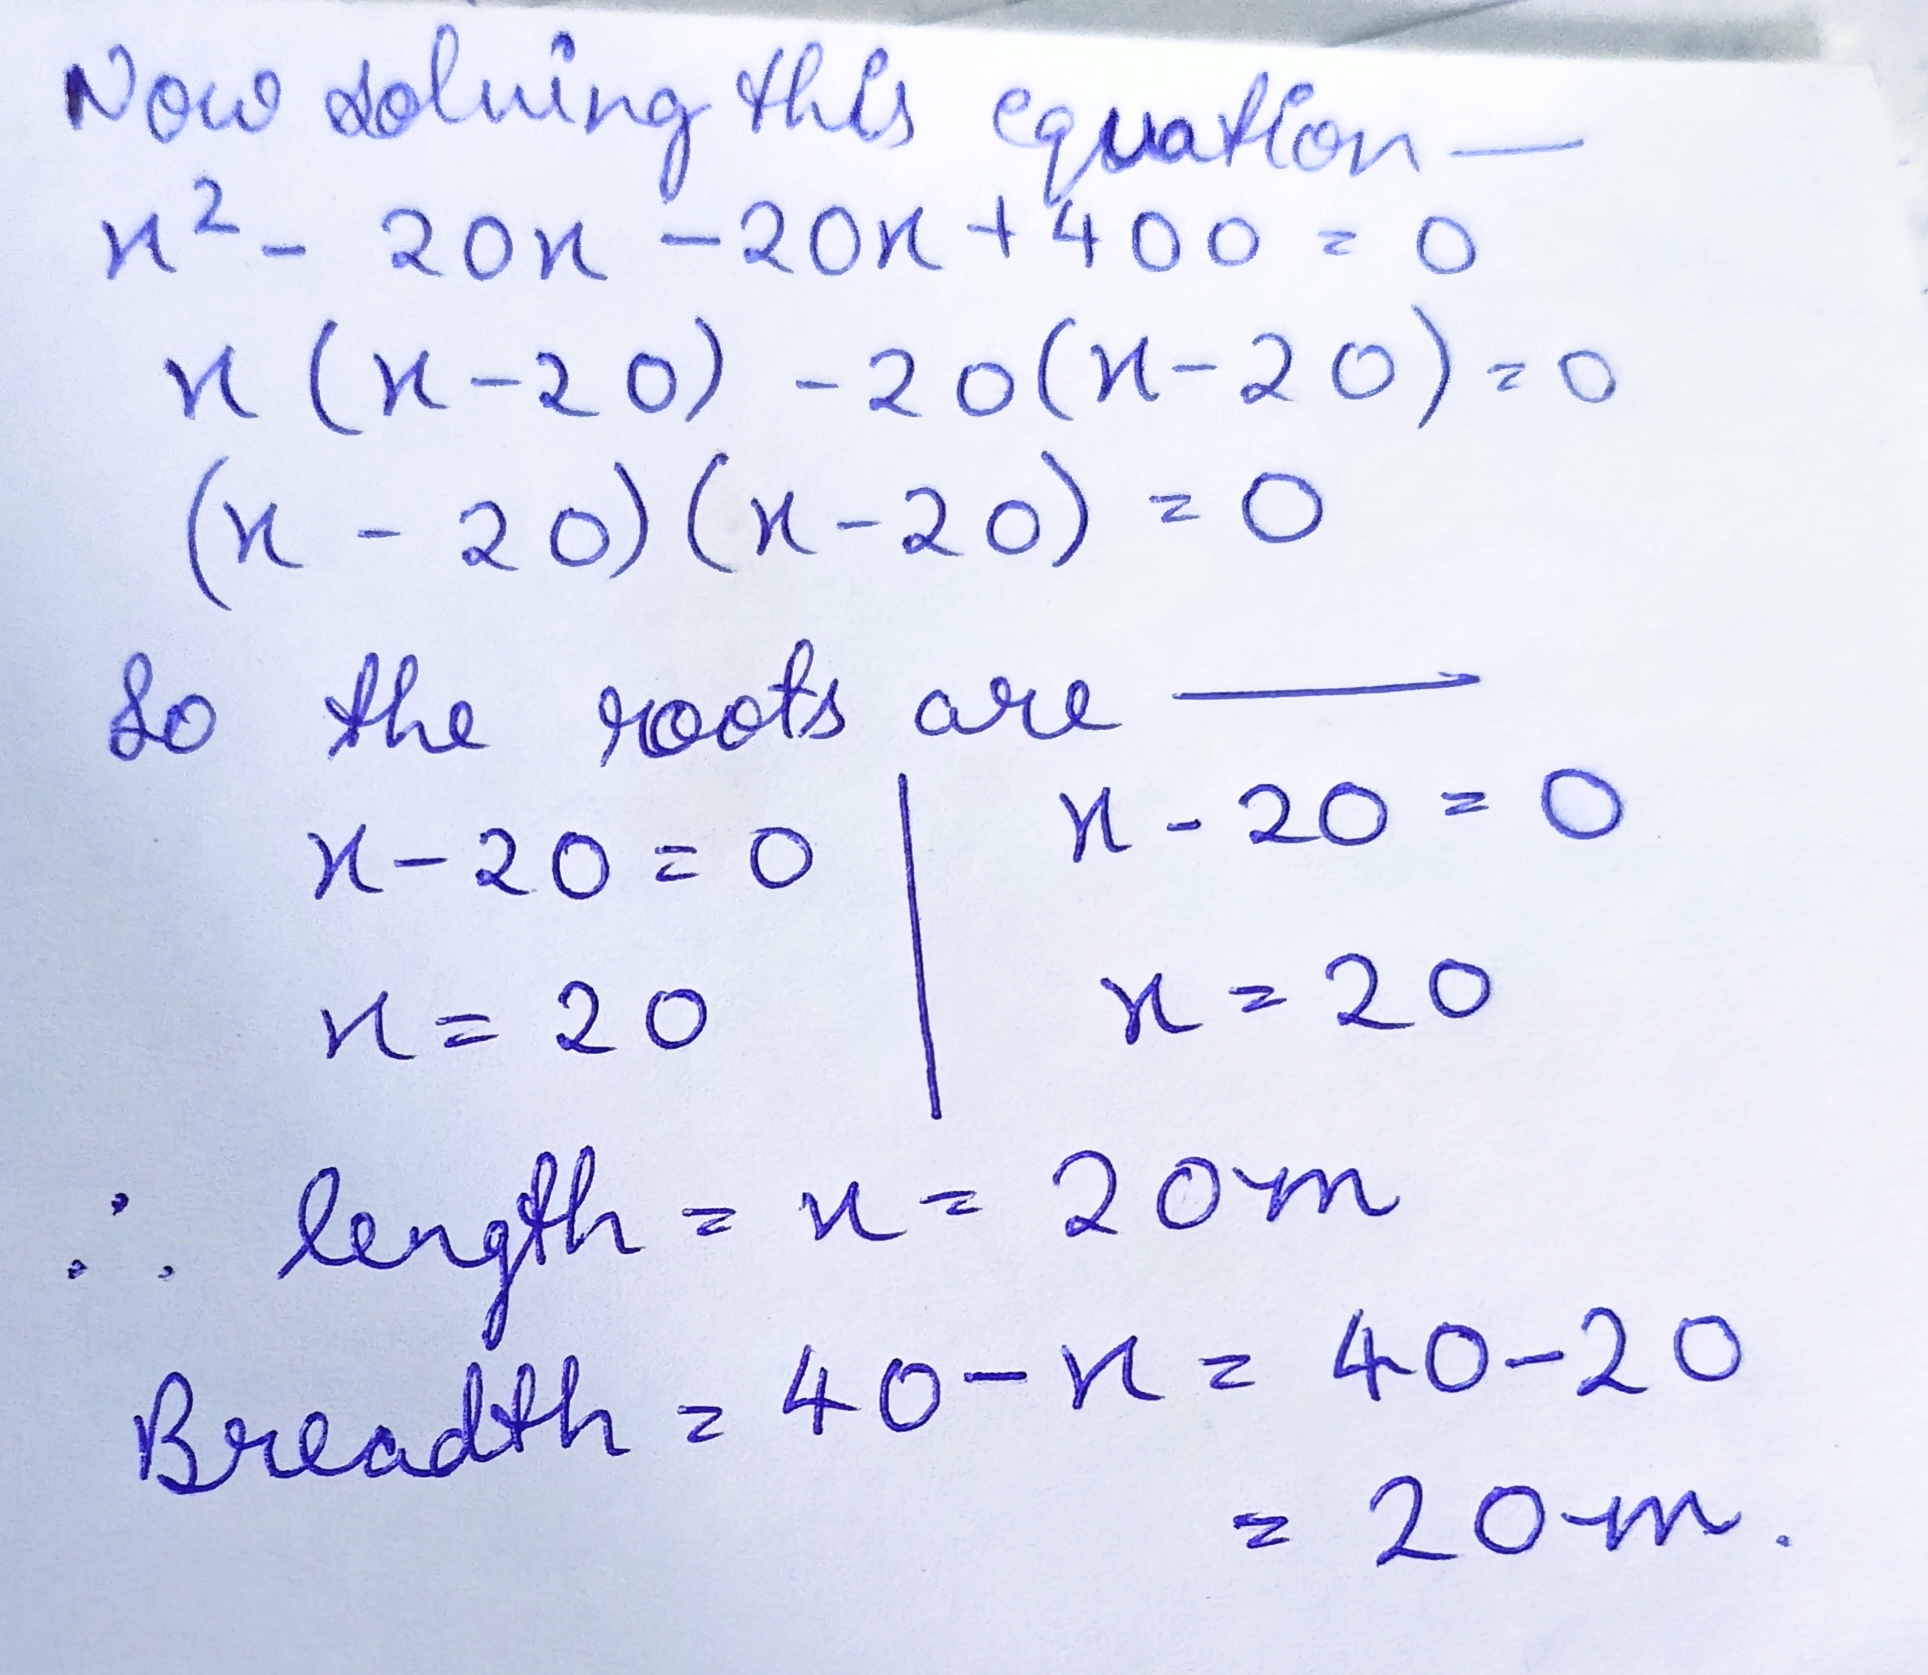 Now solving this equation —
x² - 20x - 20x + 400 = 0
x (x - 20) - 20(x - 20) = 0
(x - 20)(x - 20) = 0
So the roots are —
x - 20 = 0 | x - 20 = 0
x = 20 | x = 20
∴ length = x = 20m
Breadth = 40 - x = 40 - 20
= 20m.